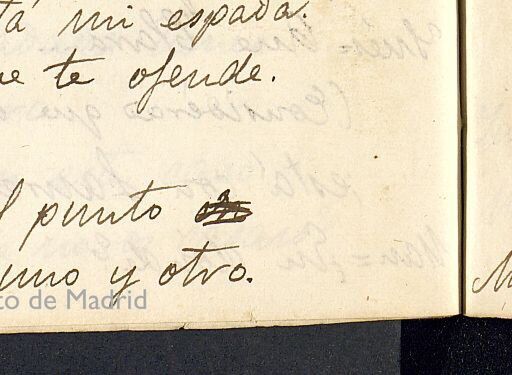 tá mi espada.
ue te ofende.
l punto
uno y otro.
to de Madrid
M